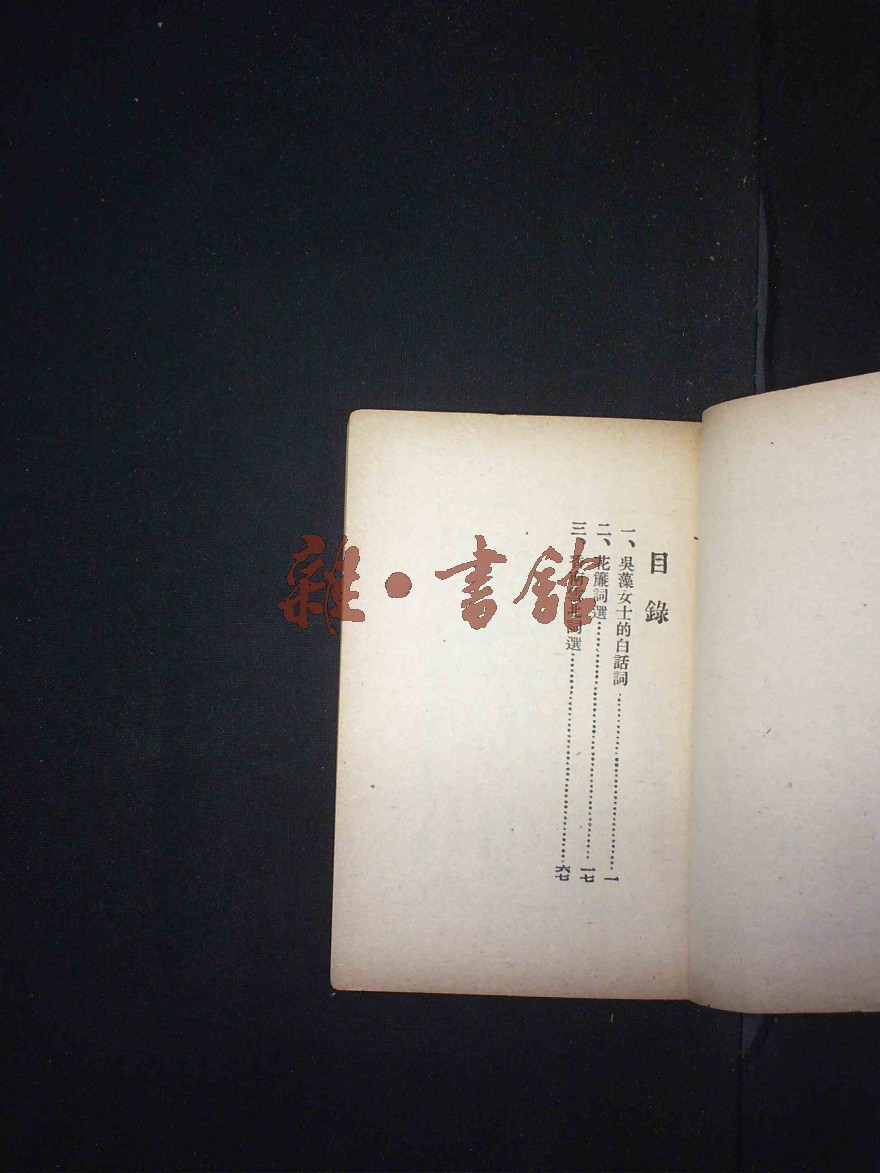 目錄
一、吳藻女士的白話詞…………一
二、花簾詞選…………一七
三、香南雪北詞選…………六七
雜·書館